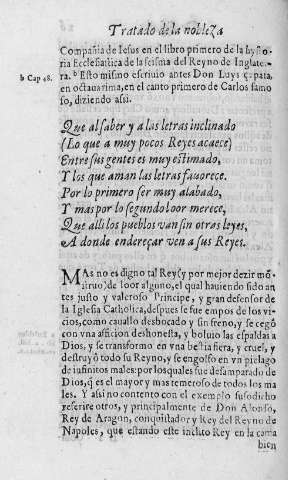 Tratado de la nobleza
Compañia de Iesus en el libro primero de la hysto
ria Ecclesiastica de la scisma del Reyno de Inglate-
b Cap 48.
rra. b Esto mismo escriuio antes Don Luys çapata,
en octaua rima, en el canto primero de Carlos famo
so, diziendo assi.
Que al saber y a las letras inclinado
(Lo que a muy pocos Reyes acaece)
Entre sus gentes es muy estimado,
Y los que aman las letras fauorece.
Por lo primero ser muy alabado,
Y mas por lo segundo loor merece,
Que alli los pueblos van sin otras leyes,
A donde endereçar ven a sus Reyes.
MAs no es digno tal Rey (y por mejor dezir mõ
struo) de loor alguno, el qual hauiendo sido an
tes justo y valeroso Principe, y gran defensor de
la Iglesia Catholica, despues se fue empos de los vi-
cios, como cauallo desbocado y sin freno, y se cegó
con vna aficion deshonesta, y boluio las espaldas a
Dios, y se transformo en vna bestia fiera, y cruel, y
destruyó todo su Reyno, y se engolfo en vn pielago
de infinitos males: por los quales fue desamparado de
Dios, q̃ es el mayor y mas temeroso de todos los ma
les. Y assi no contento con el exemplo susodicho
referire otros, y principalmente de Don Alonso,
Rey de Aragon, conquistador y Rey del Reyno de
Napoles, que estando este inclito Rey en la cama
bien